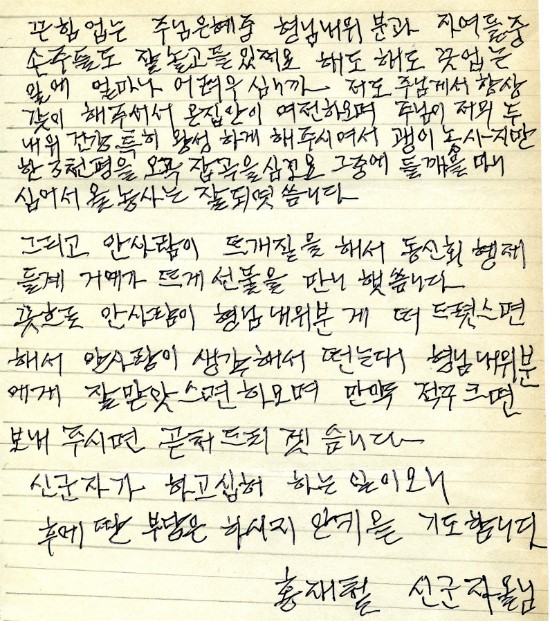 끈힘업는 주님은혜중 형님내위분과 자여들중
손주들도 잘놀고들 있쩨요 해도 해도 끗업는
일에 얼마나 어려우심니까 저도 주님게서 항상
갗이 해주서서 온집안이 여전하오며 주님이 저의 두
내위 건강 특히 왕성하게 해주시여서 괭이 농사지만
한 3천평을 오곡 잡곡을 심고요 그중에 들깨을 마니
심어서 올농사는 잘되엿씀니다
그리고 안사람이 뜨개질을 해서 동신회 형제
들게 거메가 뜨게선물을 만니 햇씀니다
끗흐로 안사람이 형님내위분게 떠 드렷스면
해서 안사람이 생각해서 떤는대 형님내위분
에게 잘맏앗스면하오며 만약 적꾸크면
보내 주시면 곧처드리 겟씀니다
신군자가 하고십허 하는 일이오니
후에 딴 부담은 하시지 안키을 기도함니다
홍재철 신군자올님